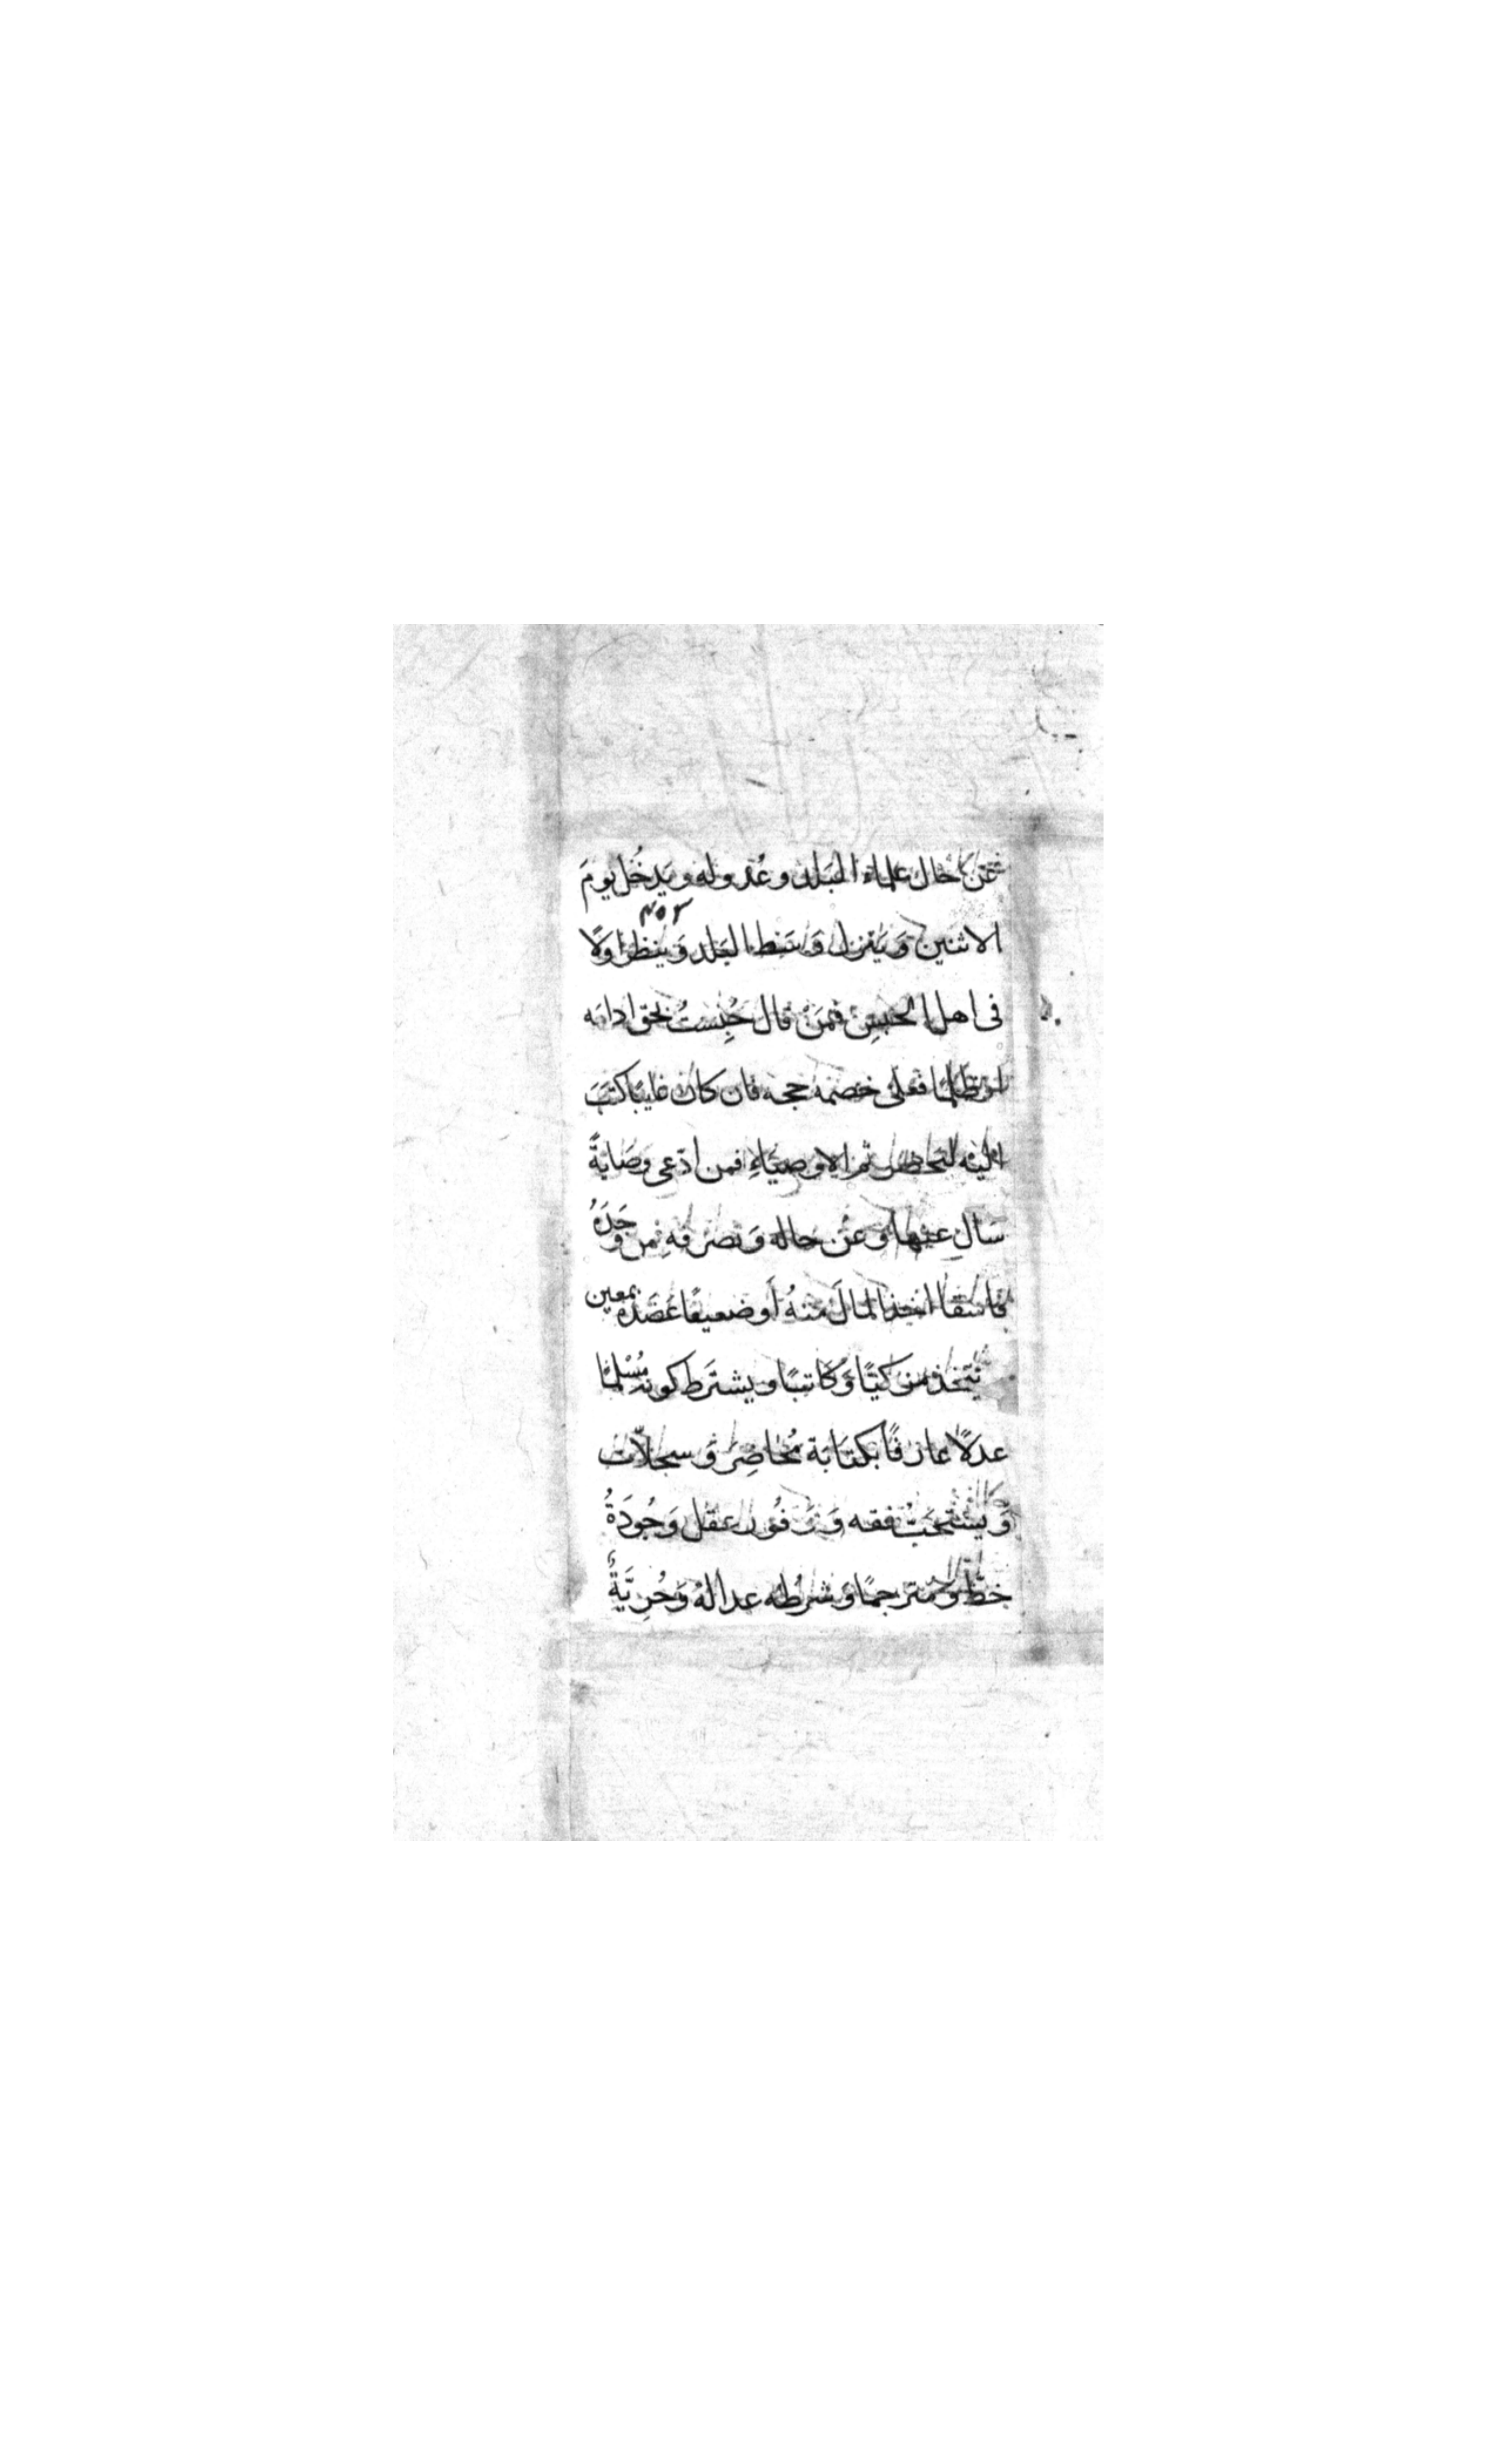 عن حال علماء البلد وعُدوله ويَدخُل يومَ
الاثنين وَيَنزل وَسَط البَلد وَينظر اولًا
فى اهل الحَبسِ فمَنْ قال حُبِستُ بحق ادامَه
او ظلمًا فعَلى خصمه حجه فان كان غايبًا كتبَ
اليه ليحضر ثم الاوصيَاءِ فمن ادّعى وصَايةً
سَال عنها وَعَن حاله وَتصَرفهِ فمن وَجَدَهُ
فاسقا اخذ المالَ منهُ اَو ضعيفًا عَضَدهُ بمعين
يتّخذ مزكيًا وَكاتبًا ويشتَرط كونه مُسْلمًا
عدلًا عارفًا بكتَابَة مُحَاضِرَ وَسجلّات
وَيُسْتحَبّ فقه وَوَفُور عقل وَجُودَةُ
خطّ ومترجمًا وَشرطُه عدالهُ وَحُرِيَّةُ